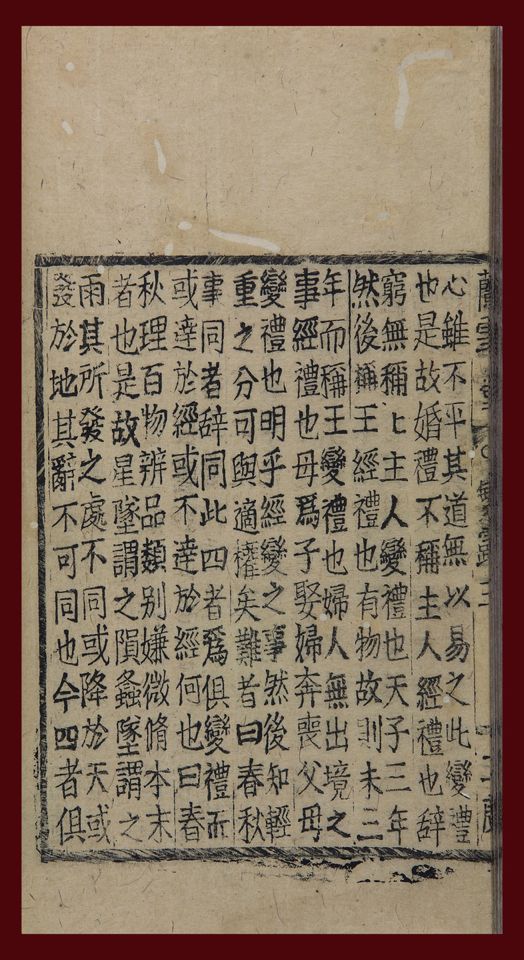 心雖不平其道無以易之此變禮
也是故婚禮不稱主人經禮也辞
窮無稱〻主人變禮也天子三年
然後稱王經禮也有物故則未三
年而稱王變禮也婦人無出境之
事經禮也母爲子娶婦奔喪父母
變禮也明乎經變之事然後知輕
重之分可與適權矣難者曰春秋
事同者辞同此四者爲俱變禮而
或達於經或不達於經何也曰春
秋理百物辨品類别嫌微脩本末
者也是故星墜謂之隕螽墜謂之
雨其所發之處不同或降於天或
發於地其辭不可同也今四者俱